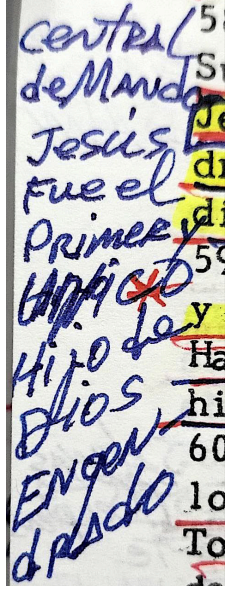 CENTRAL
de MANdo
JESÚS
FUE el
PRIMER y
ÚNICO
HIJO de
DIOS
ENGEN-
dRADO
58
Je
di
59
y
Ha
hi
60
lo
To